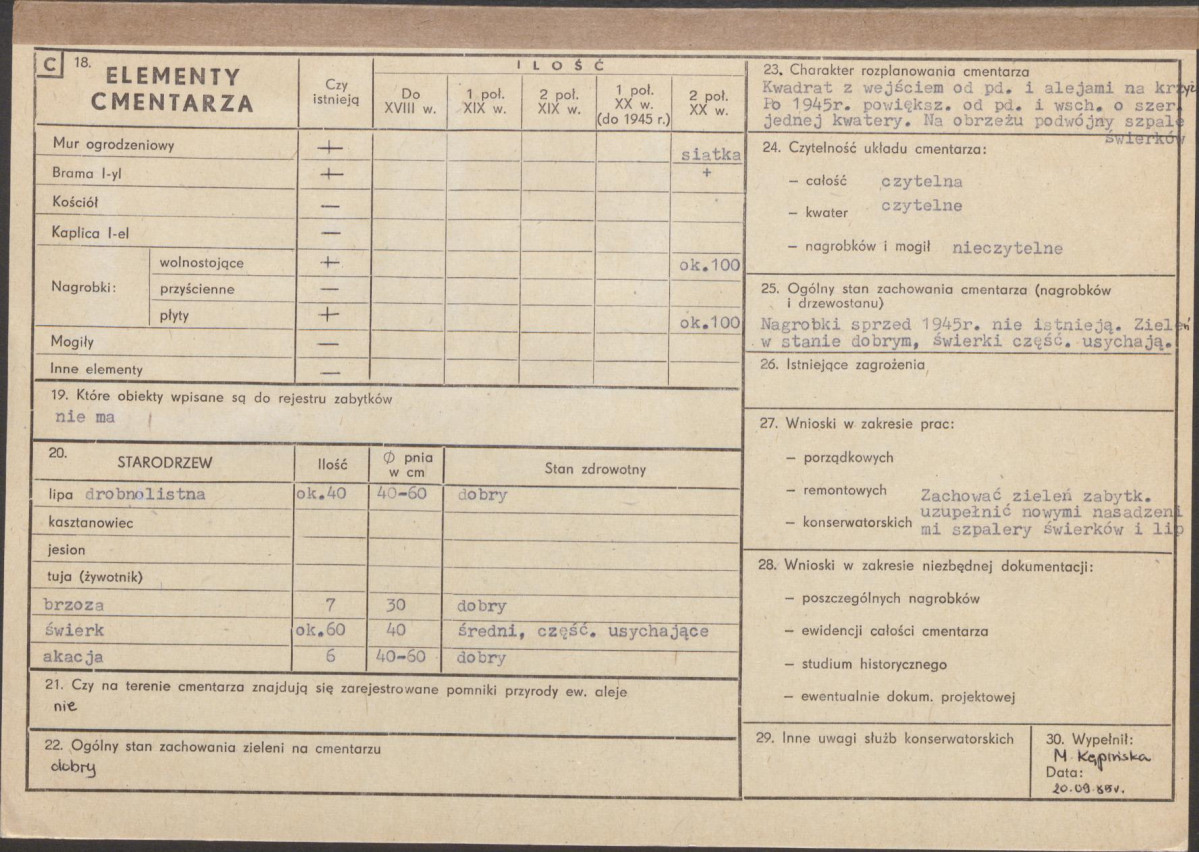 C 18. ELEMENTY CMENTARZA
Czy istnieją
ILOŚĆ
Do XVIII w.
1 poł. XIX w.
2 poł. XIX w.
1 poł. XX w. (do 1945 r.)
2 poł. XX w.
Mur ogrodzeniowy + siatka
Brama I-yl + +
Kościół —
Kaplica I-el —
Nagrobki:
wolnostojące + ok.100
przyścienne —
płyty + ok.100
Mogiły —
Inne elementy —
19. Które obiekty wpisane są do rejestru zabytków
nie ma
20. STARODRZEW Ilość Ø pnia w cm Stan zdrowotny
lipa drobnolistna ok.40 40-60 dobry
kasztanowiec
jesion
tuja (żywotnik)
brzoza 7 30 dobry
świerk ok.60 40 średni, część. usychające
akacja 6 40-60 dobry
21. Czy na terenie cmentarza znajdują się zarejestrowane pomniki przyrody ew. aleje
nie
22. Ogólny stan zachowania zieleni na cmentarzu
dobry
23. Charakter rozplanowania cmentarza
Kwadrat z wejściem od pd. i alejami na krzyż
Po 1945r. powiększ. od pd. i wsch. o szer.
jednej kwatery. Na obrzeżu podwójny szpale
świerków
24. Czytelność układu cmentarza:
— całość czytelna
— kwater czytelne
— nagrobków i mogił nieczytelne
25. Ogólny stan zachowania cmentarza (nagrobków
i drzewostanu)
Nagrobki sprzed 1945r. nie istnieją. Zieleń
w stanie dobrym, świerki część. usychają.
26. Istniejące zagrożenia
27. Wnioski w zakresie prac:
— porządkowych
— remontowych Zachować zieleń zabytk.
uzupełnić nowymi nasadzeni
— konserwatorskich mi szpalery świerków i lip
28. Wnioski w zakresie niezbędnej dokumentacji:
— poszczególnych nagrobków
— ewidencji całości cmentarza
— studium historycznego
— ewentualnie dokum. projektowej
29. Inne uwagi służb konserwatorskich
30. Wypełnił:
M Kępińska
Data:
20.09.85r.